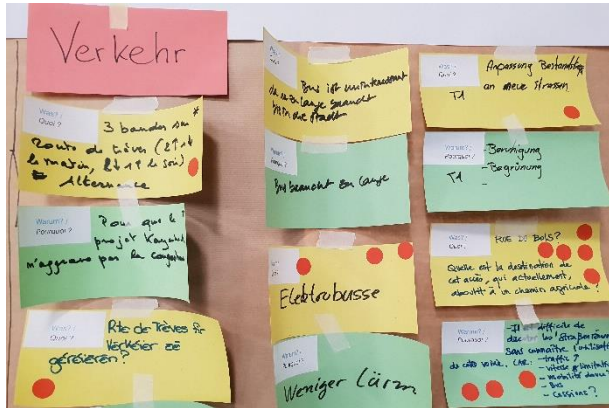 Verkehr
Was? :
Quoi ?
3 bandes sur *
Route de Trèves (2↑ 1↓
le matin, 2↓ 1↑ le soir)
* Alternance
Warum? :
Pourquoi ?
Pour que le
projet
n'aggrave pas la congestion
Was? :
Quoi ?
Rte de Trèves fir
Verkéier ze
geréieren?
Bus ist uninteressant
da er zu lange braucht
bis in die Stadt
Bus braucht zu lange
Elektrobusse
Weniger Lärm
Was? :
Quoi ?
T1
Anpassung
an neue Strassen
Warum? :
Pourquoi ?
T1
- Beruhigung
- Begrünung
-
RUE DU BOIS?
Quelle est la destination de
cet accès, qui actuellement,
aboutit à un chemin agricole ?
Warum? :
Pourquoi ?
- Il est difficile de
Straßenraum
sans connaître l'utilisation
de cette voirie. CAR: - traffic ?
- vitesse
- mobilité douce ?
- Bus
- Cessions ?